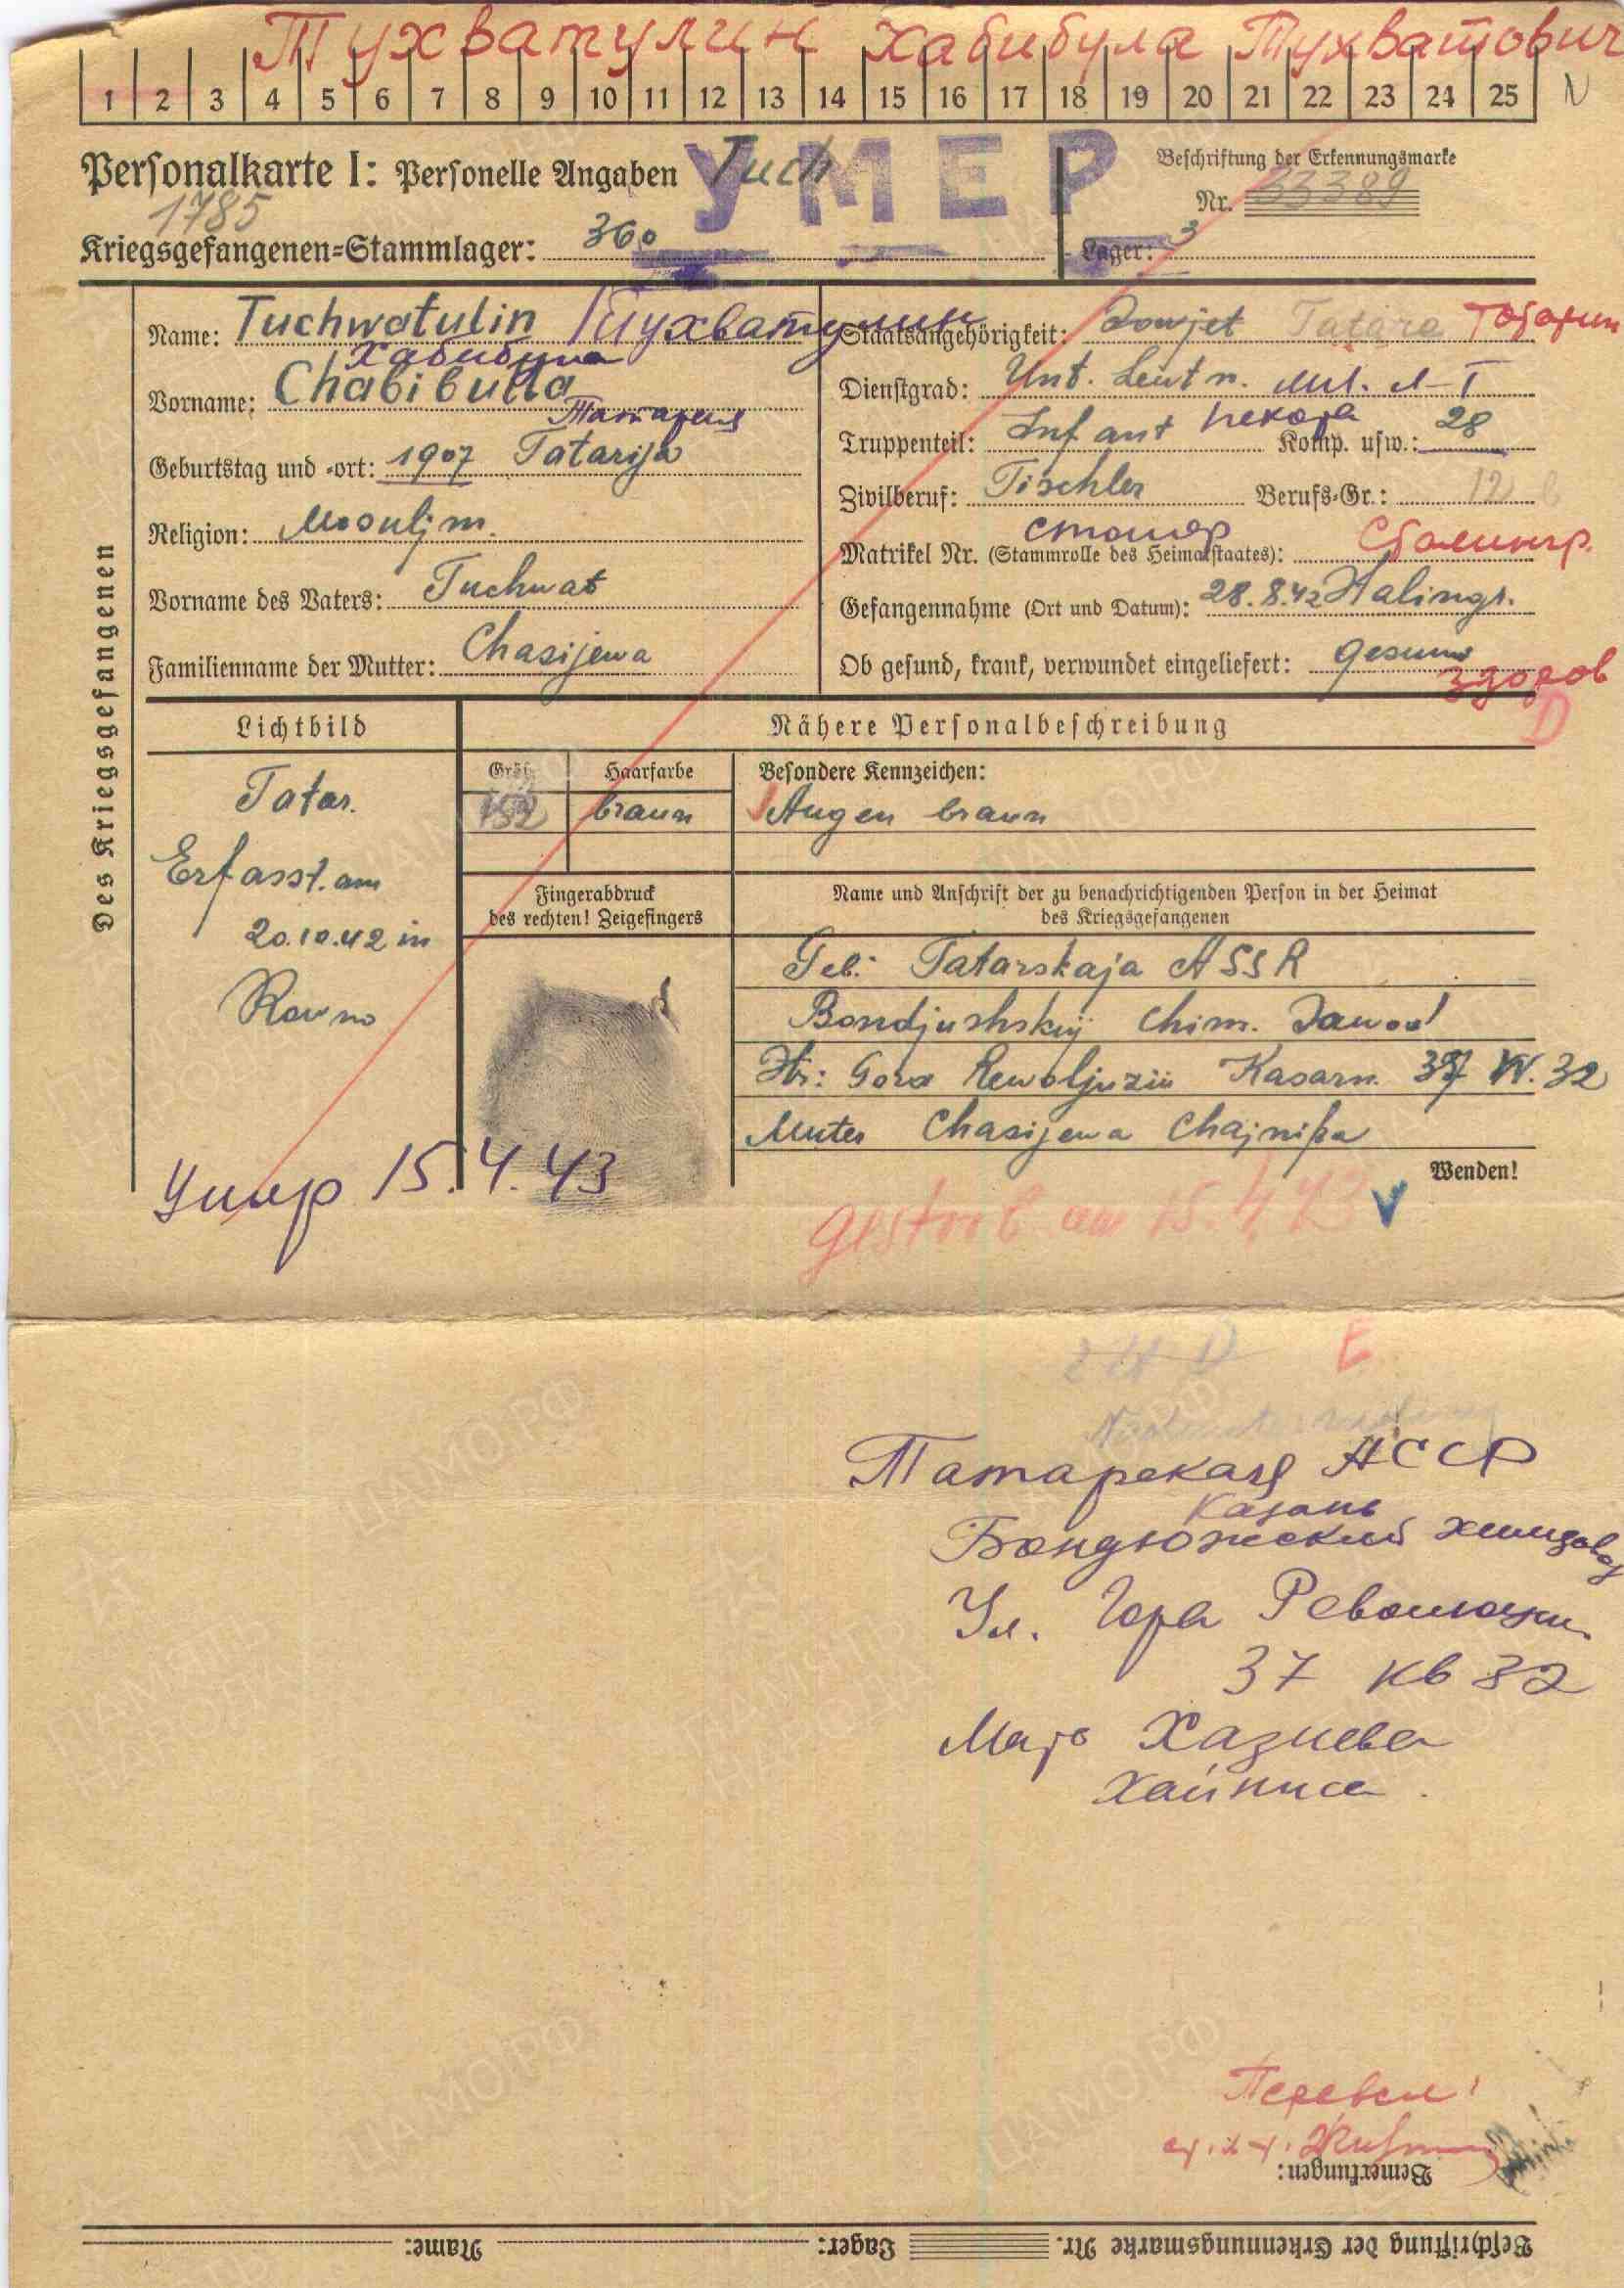 Тухватулин Хабибула Тухватович
1 2 3 4 5 6 7 8 9 10 11 12 13 14 15 16 17 18 19 20 21 22 23 24 25 N
Personalkarte I: Personelle Angaben Tuch
УМЕР
Beschriftung der Erkennungsmarke
Nr. 33389
1785
Kriegsgefangenen-Stammlager: 360
Lager: 3
Des Kriegsgefangenen
Name: Tuchwatulin Тухватулин
Хабибула
Vorname: Chabibulla
Татария
Geburtstag und -ort: 1907 Tatarija
Religion: Mosulj m.
Vorname des Vaters: Tuchwat
Familienname der Mutter: Chasijewa
Staatsangehörigkeit: Sowjet Tatare Татарин
Dienstgrad: Unt. Leutn. мл. л-т
Truppenteil: Infant пехота Komp. usw.: 28
Zivilberuf: Tischler Berufs-Gr.: 12
столяр
Matrikel Nr. (Stammrolle des Heimatstaates): Сталингр.
Gefangennahme (Ort und Datum): 28.8.42 Stalingr.
Ob gesund, krank, verwundet eingeliefert: gesund
здоров
D
Lichtbild
Tatar.
Erfasst. am
20.10.42 in
Rowno
Nähere Personalbeschreibung
Größe Haarfarbe
152 braun
Besondere Kennzeichen:
Augen braun
Fingerabdruck
des rechten! Zeigefingers
Name und Anschrift der zu benachrichtigenden Person in der Heimat
des Kriegsgefangenen
Geb: Tatarskaja ASSR
Bondjushskij Chim. Sawod
Str: Gora Rewoljuzii Kasarn. 37 W. 32
Muter Chasijewa Chajnisa
Wenden!
Умер 15.4.43
gestorb am 15.4.43
E
Татарская АССР
Казань
Бондюжский химзавод
Ул. Гора Революции
37 кв 32
Мать Хазиева
Хайниса.
Перевел:
Bemerkungen:
Beschriftung der Erkennungsmarke Nr. Lager: Name: